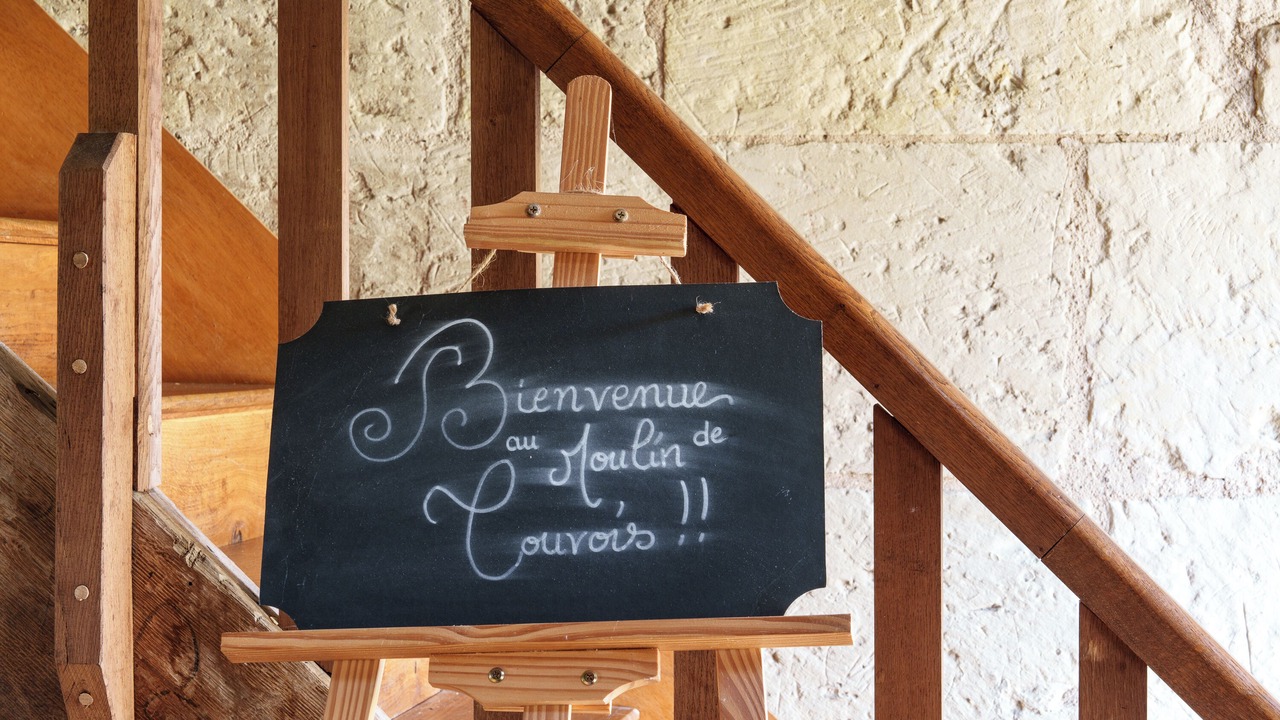 Bienvenue
au Moulin de
Touvois !!